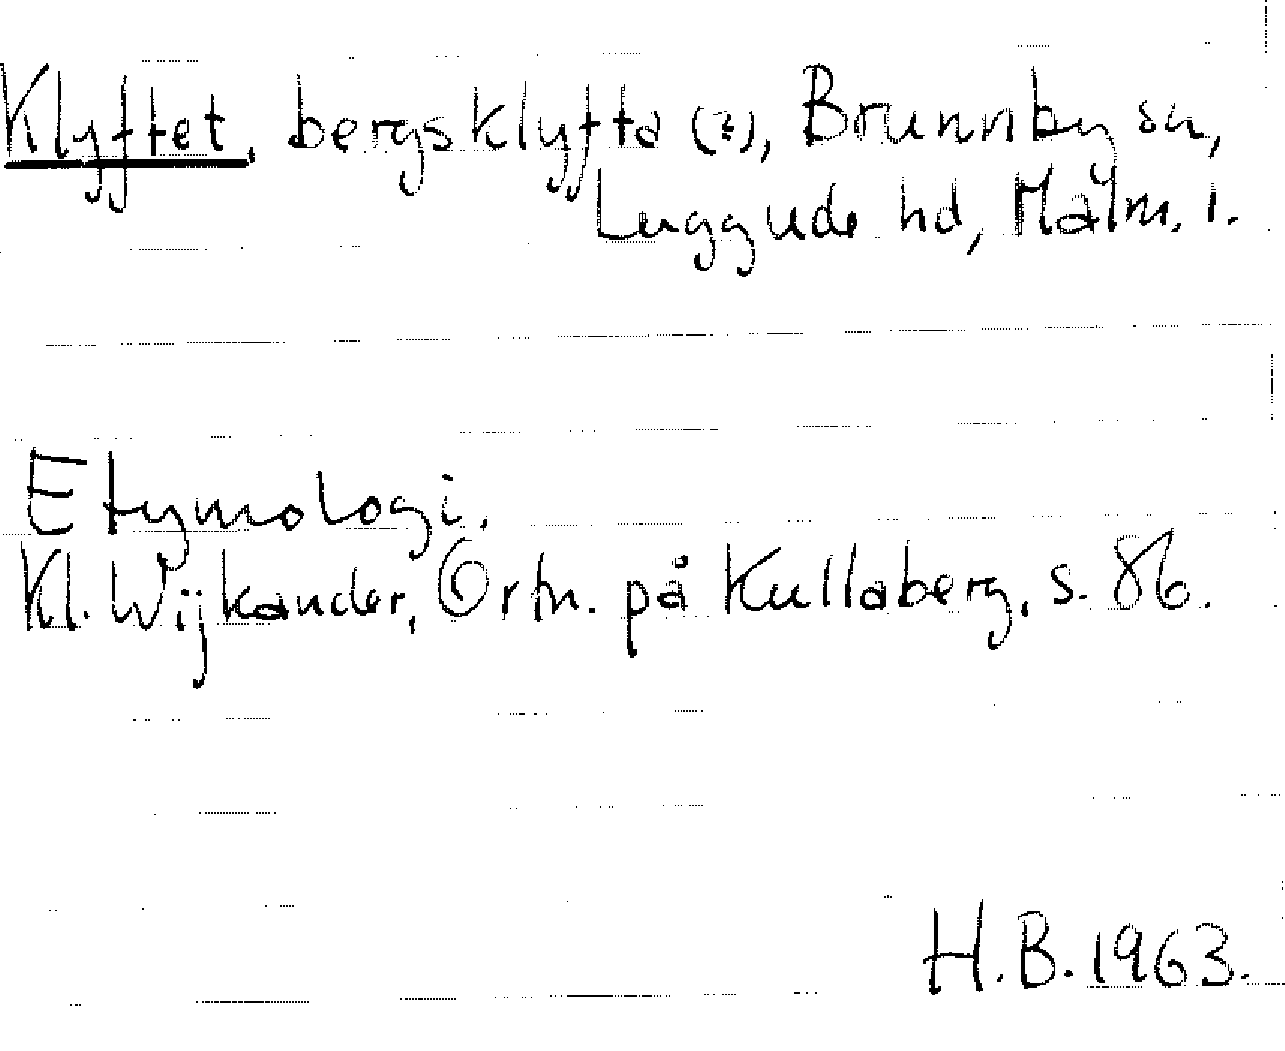 Klyftet, bergsklyfta (?), Brunnby sn,
Luggude hd, Malm. l.
Etymologi.
Kl. Wijkander, Ortn. på Kullaberg, s. 86.
H.B. 1963.